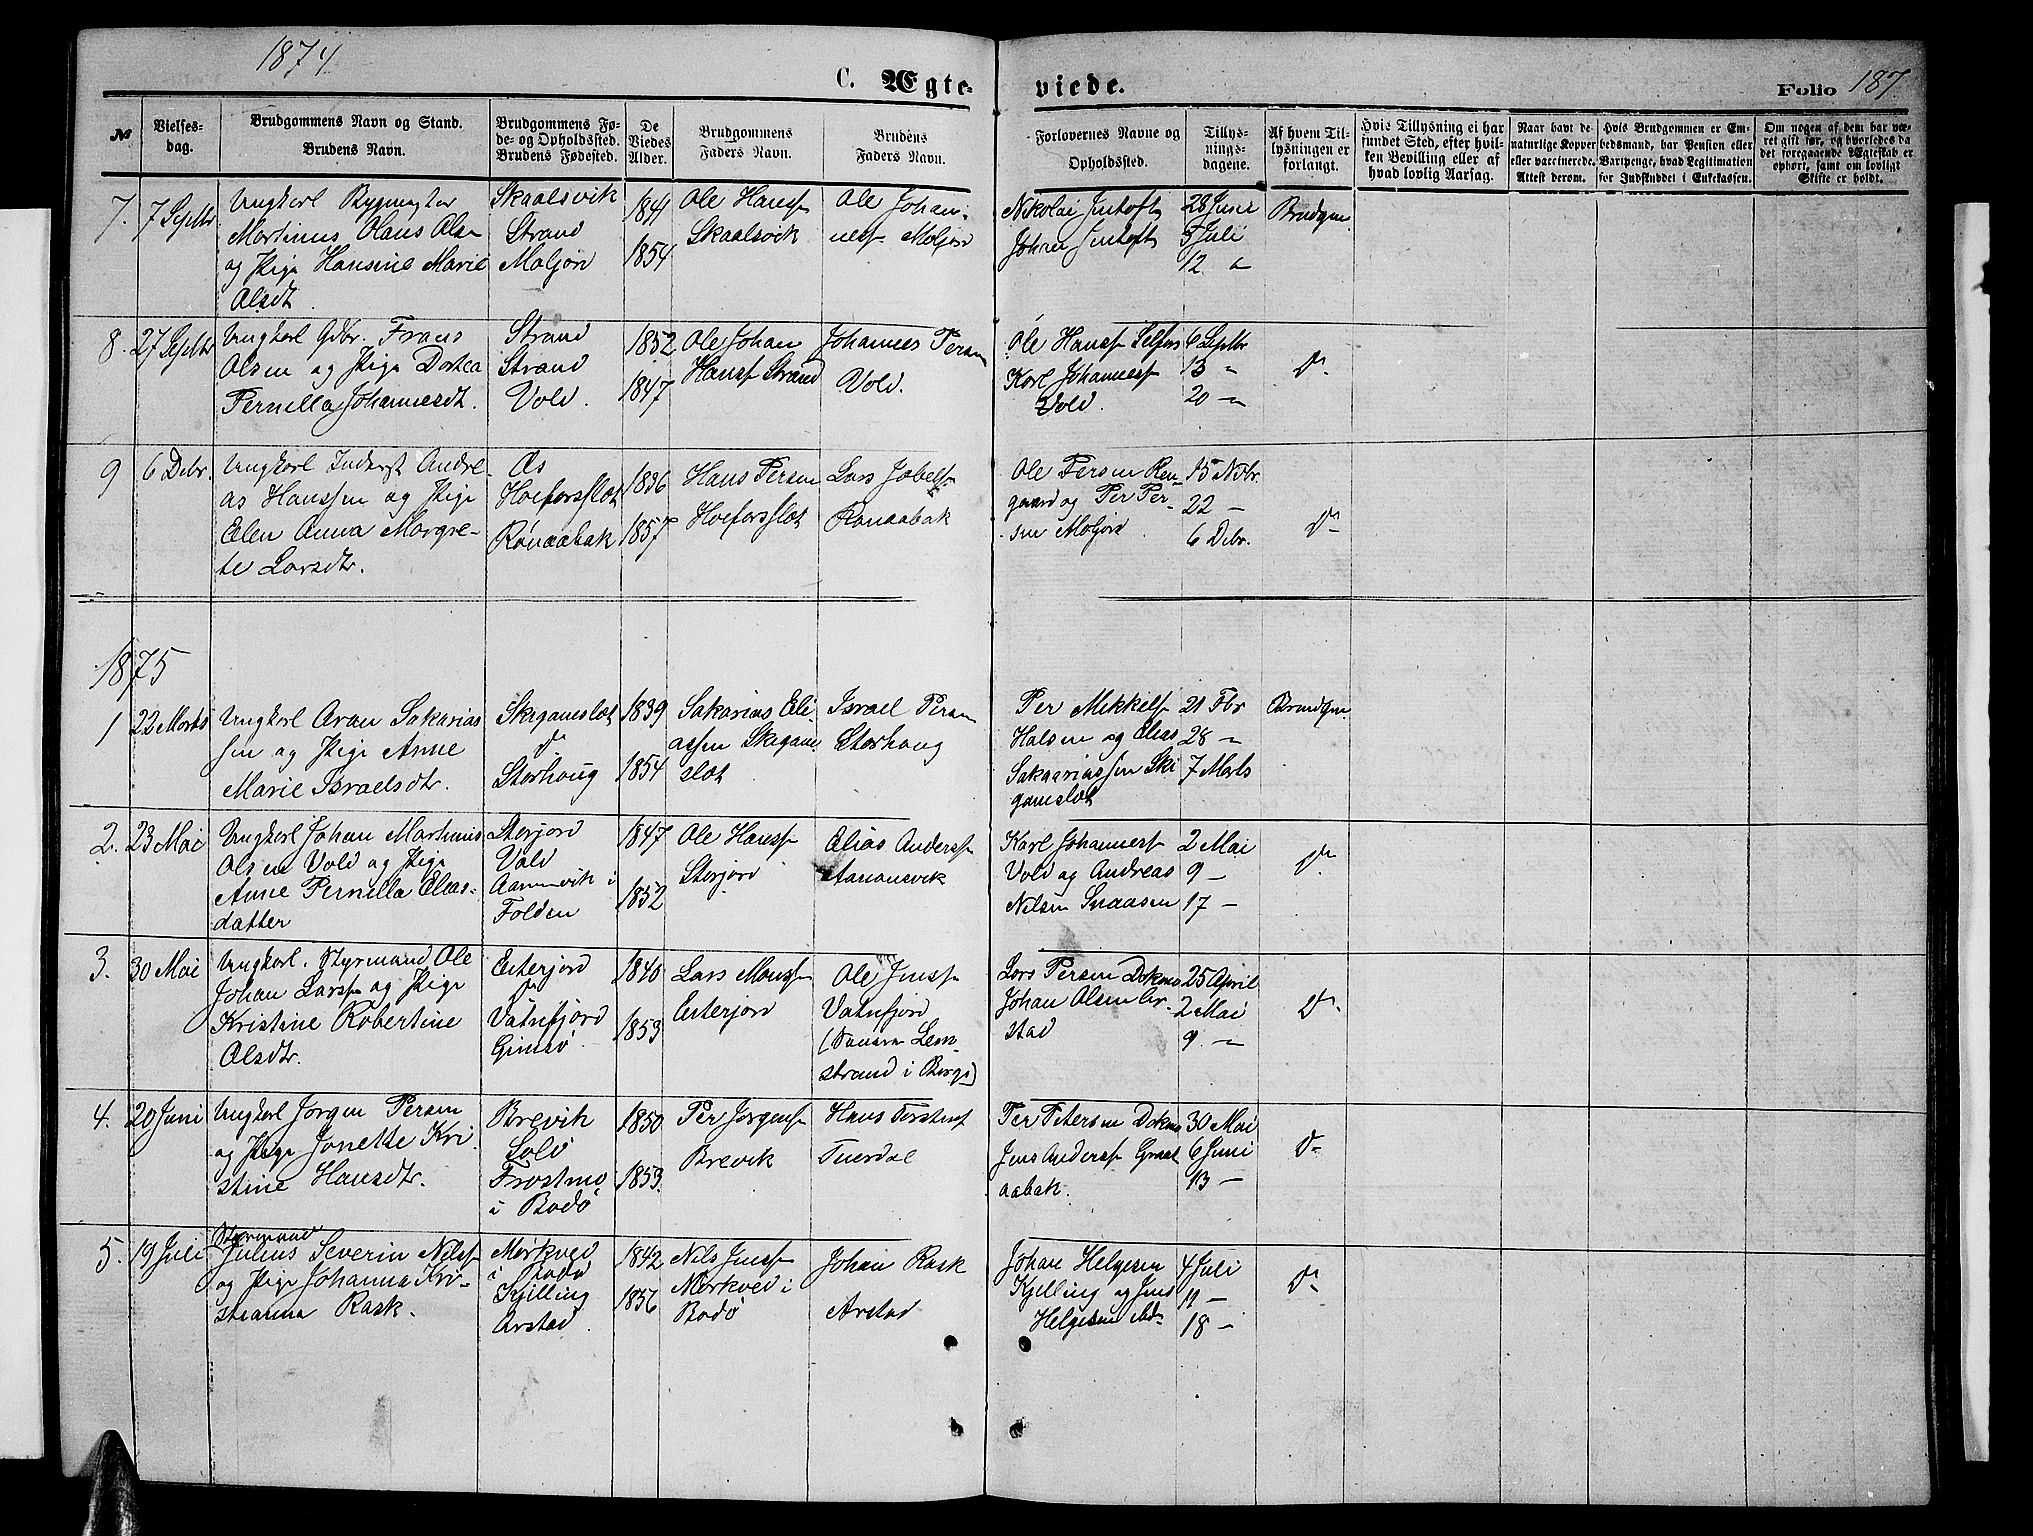 1874
C. Ægte-
viede.
Folio 187
№
Vielses-
dag.
Brudgommens Navn og Stand.
Brudens Navn.
Brudgommens Fø-
de- og Opholdssted.
Brudens Fødested.
De
Viedes
Alder.
Brudgommens
Faders Navn.
Brudens
Faders Navn.
Forlovernes Navne og
Opholdssted.
Tillys-
nings-
dagene.
Af hvem Til-
lysningen er
forlangt.
Hvis Tillysning ei har
fundet Sted, efter hvil-
ken Bevilling eller af
hvad lovlig Aarsag.
Naar havt de
naturlige Kopper
eller vaccinerede.
Attest derom.
Hvis Brudgommen er Em-
bedsmand, har Pension eller
Vartpenge, hvad Legitimation
for Indskuddet i Enkekassen.
Om nogen af dem har væ-
ret gift før, og hvorledes da
det foregaaende Ægteskab er
ophørt, samt om lovligt
Skifte er holdt.
7. 7 Septbr
Ungkarl
Martinus Olaus Olsn
og Pige Hansine Marie
Olsdt.
Skaalsvik
Strand
Moljord
1841
1854
Ole Hanss
Skaalsvik
Ole Johan-
ness Moljord
Nikolai Jentoft
Johan Jentoft
28 Juni
5 Juli
12 "
Brudgm
8. 27 Septbr
Ungkarl Gdbr. Frans
Olsen og Pige Dortea
Pernella Johannesdt.
Strand
Strand
Vold.
1852
1847
Ole Johan
Hanss Strand
Johannes Persn
Vold.
Ole Hanss Selfors
Karl Johanness
Vold.
6 Septbr
13 "
20 "
Do
9 6 Debr.
Ungkarl Inderst Andre-
as Hanssen og Pige
Elen Anna Margre-
te Larsdtr.
Æs
Hoeforsslet
Rønaabak
1836
1857
Hans Persen
Hoeforsslet
Lars Jobels
Rønaabak
Ole Persen Ren-
gaard og Per Per-
sen Moljord
15 Nvbr.
22 -
6 Debr.
Do
1875
1 22 Marts
Ungkarl Aron Sakarias
sen og Pige Anne
Marie Israelsdtr.
Skeganeslet
Do
Storhoug
1839
1854
Sakarias Eli
assen Skegane
slet
Israel Persn
Storhaug
Per Mikkels
Halsen og Elias
Sakariassen Ski
ganeslet
21 Fbr
28 "
7 Marts
Brudgm
2. 23 Mai
Ungkarl Johan Martinus
Olsen Vold og Pige
Anne Pernella Elias-
datter
Storjord
Vold
i
Folden
1847
1852
Ole Hanss
Storjord
Elias Anders
Karl Johanness
Vold og Andreas
Nilsen Snaasen
2 Mai
9 -
17 -
Do
3. 30 Mai
Ungkarl. Styrmand Ole
Johan Larss og Pige
Kristine Robertine
Olsdtr.
Esterjord
Do
Vatnfjord
Gimsø
1840
1853
Lars Monss
Esterjord
Ole Jens
Vatnfjord
strand i
Lars Persen Dokmo
Johan Olsen Ar-
stad
25 April
2 Mai
9 "
Do
4. 20 Juni
Ungkarl Jørgen Persen
og Pige Jonette Kri
stine Hansdtr.
Brevik
Solø
Frostmo
i Bodø
1850
1853
Per Jørgens
Brevik
Hans
Tuerdal
Per Petersen Dokmo
Jens Anders Graat
aabak.
30 Mai
6 Juni
13 -
Do
5. 19 Juli
Styrmand
Julius Severin Nilss
og Pige Johanna Kri-
stianna Rask.
Mørkved
i Bodø
Kjelling
Arstad
1842
1856
Nils Jens
Mørkved i
Bodø
Johan Rask
Arstad
Johan Helgesen
Kjelling og Jens
Helgesen ibd
4 Juli
11 -
18 -
Do